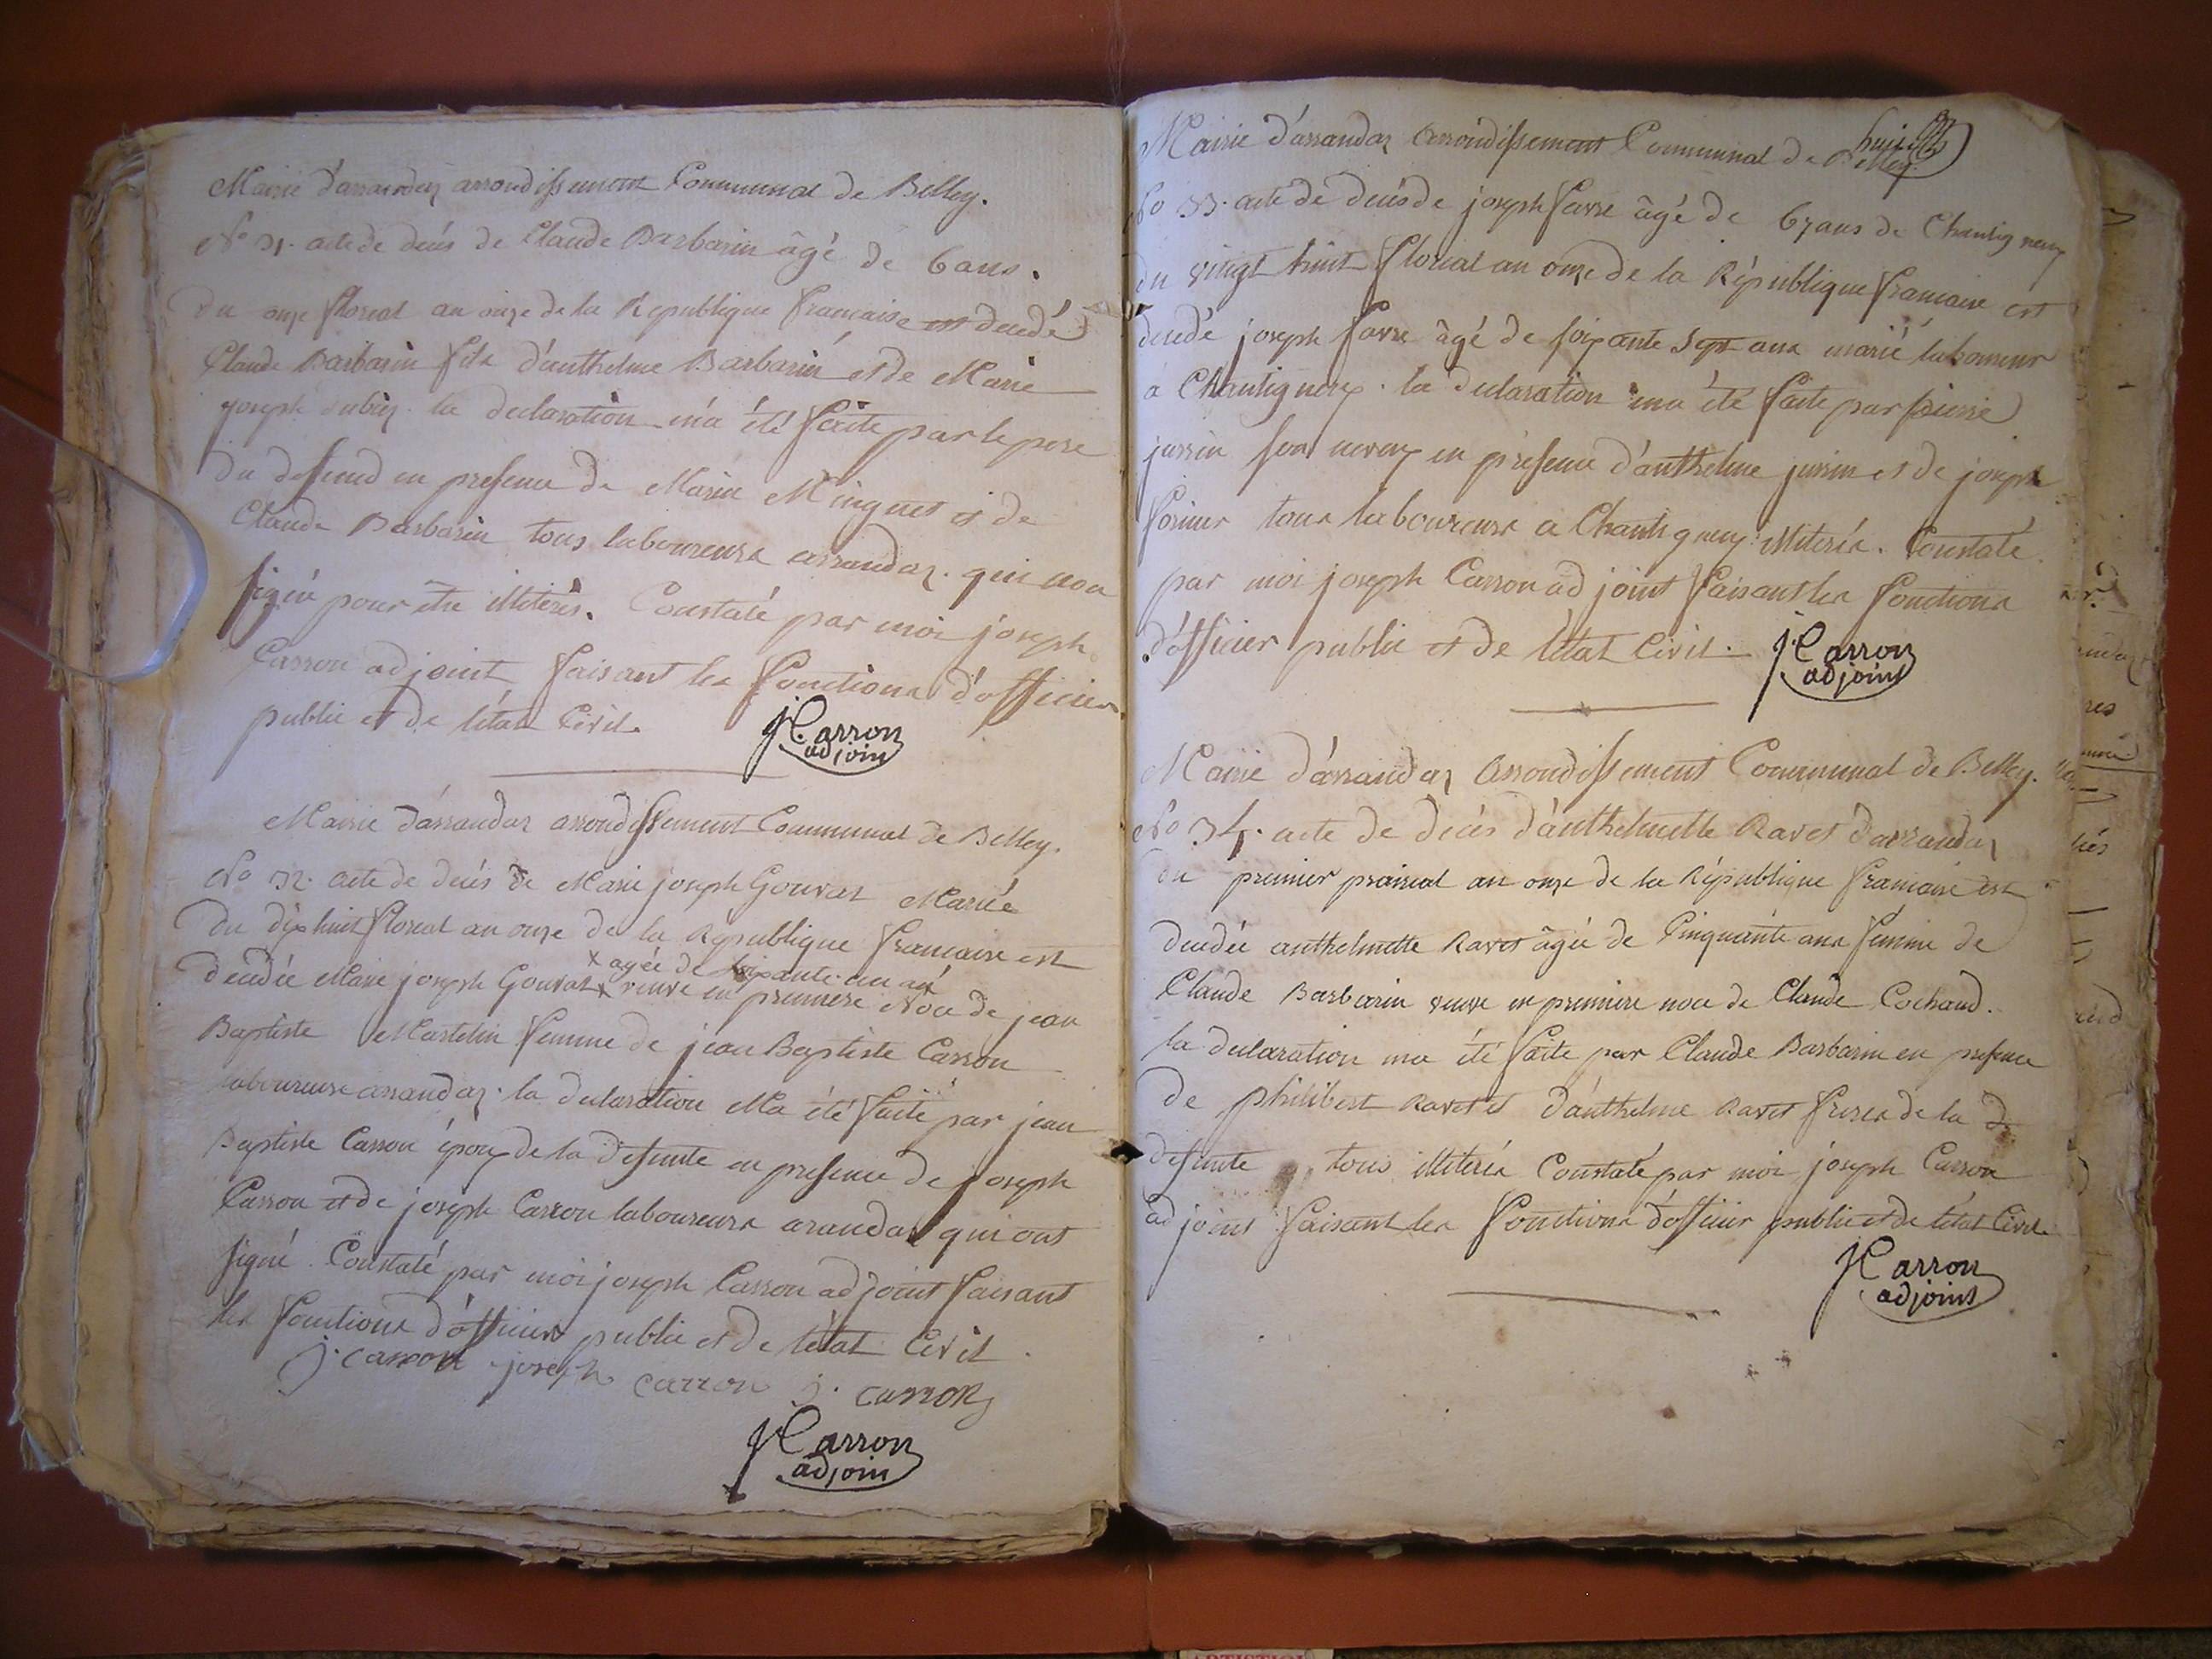 Mairie d'arrandaz arrondissement Communal de Belley.
No 31. acte de decés de Claude Barbarin âgé de 6 ans.
du onze floreal an onze de la Republique francaise est decedé
Claude Barbarin fils d'anthelme Barbarin et de Marie
joseph la declaration m'a été faite par le pere
du deffund en presence de Marin Minguet et de
Claude Barbarin tous laboureurs arrandaz. qui non
signé pour être illiterés. Constaté par moi joseph
Carron adjoint faisant les fonctions d'officier
public et de létat Civil.
J Carron
adjoin
Mairie d'arrandaz arrondissement Communal de Belley.
No 32. acte de decés de Marie joseph Gouvat Mariée
du dix huit floreal an onze de la République francaise est
x agée de soixante un an
decedée Marie joseph Gouvat x veuve en premiere Noce de jean
Baptiste Martelin femme de jean Baptiste Carron
laboureurs arrandaz. la declaration Ma été faite par jean
Baptiste Carron époux de la defunte en presence de joseph
Carron et de joseph Carron laboureurs arandaz qui ont
signé. Constaté par moi joseph Carron adjoint faisant
les fonctions d'officier public et de létat Civil.
j. carron joseph carron j. carron
J Carron
adjoin
huit
Mairie d'arrandaz Arrondissement Communal de Belley.
No 33. acte de decés de joseph favre âgé de 67 ans de Chantigneux
du vingt huit floreal an onze de la République francaise est
decedé joseph favre âgé de soixante sept ans marié laboureur
a Chantigneux. la declaration ma été faite par pierre
jurrin son neveux en presence d'anthelme jurrin et de joseph
tous laboureurs a Chantigneux illiterés. Constaté
par moi joseph Carron adjoint faisant les fonctions
d'officier public et de létat Civil.
J Carron
adjoint
Mairie d'arrandaz Arrondissement Communal de Belley.
No 34. acte de decés d'anthelmette Ravet d'arrandaz
du premier prairial an onze de la République francaise est
decedée anthelmette Ravet âgée de Cinquante ans femme de
Claude Barbarin veuve en premiere noce de Claude Cochand.
la declaration ma été faite par Claude Barbarin en presence
de philibert Ravet et d'anthelme Ravet freres de la d
defunte tous illiterés Constaté par moi joseph Carron
adjoint faisant les fonctions d'officier public et de létat Civil.
J Carron
adjoint